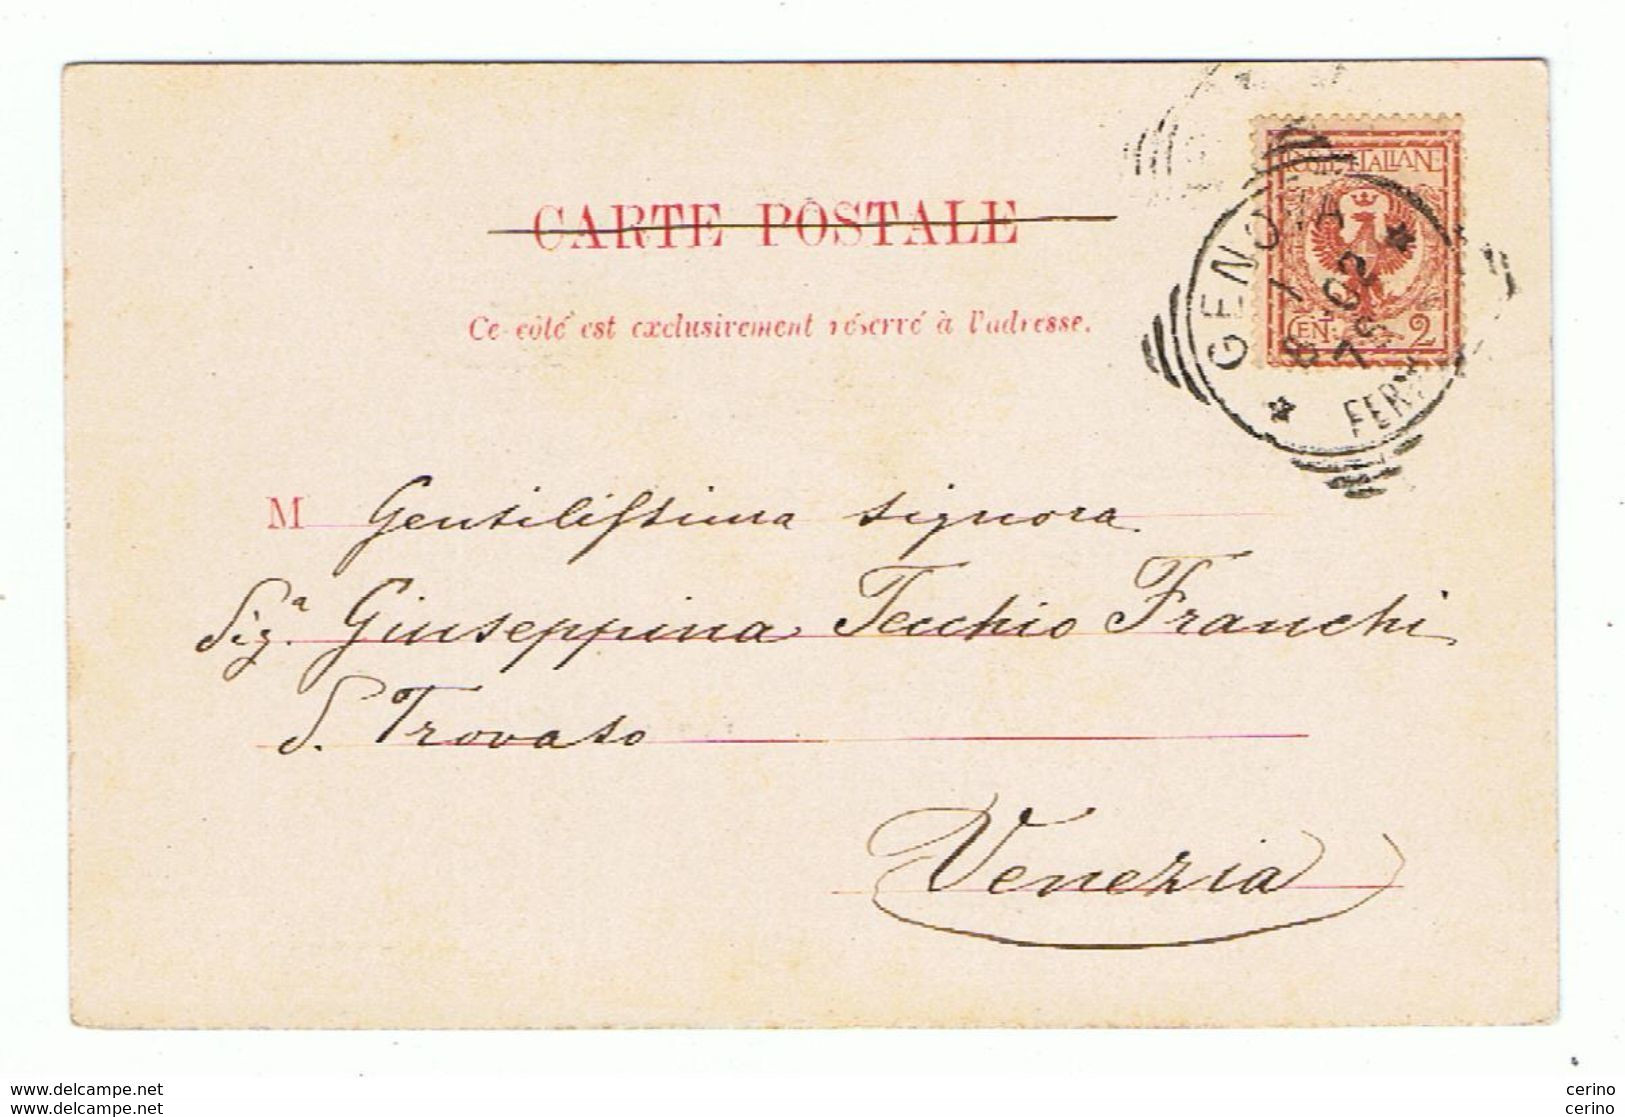 CARTE POSTALE
Ce côté est exclusivement réservé à l'adresse.
POSTE ITALIANE
CEN: 2
GENOVA
8 1 02
FERR
M Gentilissima signora
Sig.a Giuseppina Tecchio Franchi
S. Trovaso
Venezia
www.delcampe.net
www.delcampe.net
cerino
cerino